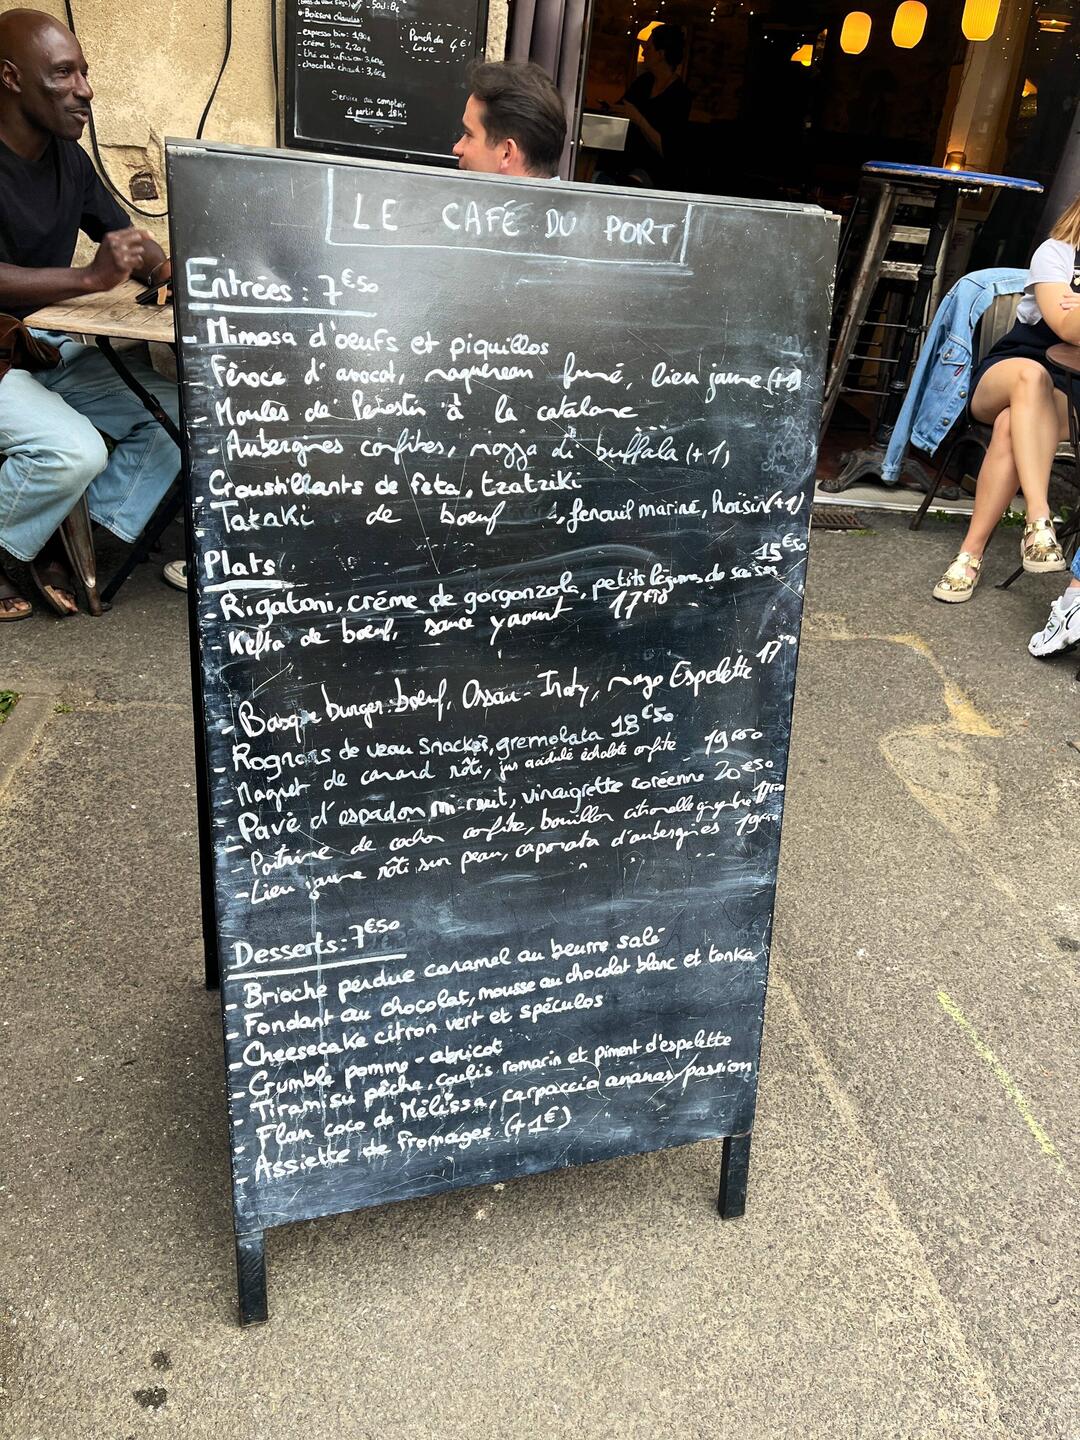 - Boissons chaudes:
- espresso bio: 1,90€
- crème bio 2,20€
- thé ou infusion: 3,60€
- chocolat chaud: 3,60€
Punch du
Love 4€
Service au comptoir
à partir de 18h!
LE CAFÉ DU PORT
Entrées: 7€50
- Mimosa d'oeufs et piquillos
Féroce d'avocat, maquereau fumé, lieu jaune (+1)
- Moules de à la catalane
- Aubergines confites, mozza di buffala (+1)
- Croustillants de feta, tzatziki
- Tataki de boeuf, fenouil mariné, hoisin (+1)
Plats 15€50
- Rigatoni, crème de gorgonzola, petits légumes de saison
- Kefta de boeuf, sauce yaourt 17€50
- Basque burger: boeuf, Ossau-Iraty, mayo Espelette 17
- Rognons de veau snackés, gremolata 18€50
- Magret de canard rôti, jus acidulé échalote confite 19€50
- Pavé d'espadon mi-cuit, vinaigrette coréenne 20€50
- Poitrine de cochon confite, bouillon citronnelle gingembre 17€50
- Lieu jaune rôti sur peau, caponata d'aubergines 19€50
Desserts: 7€50
- Brioche perdue caramel au beurre salé
- Fondant au chocolat, mousse au chocolat blanc et tonka
- Cheesecake citron vert et spéculos
- Crumble pomme-abricot
- Tiramisu pêche, coulis romarin et piment d'espelette
- Flan coco de Mélissa, carpaccio ananas/passion
- Assiette de fromages (+1€)